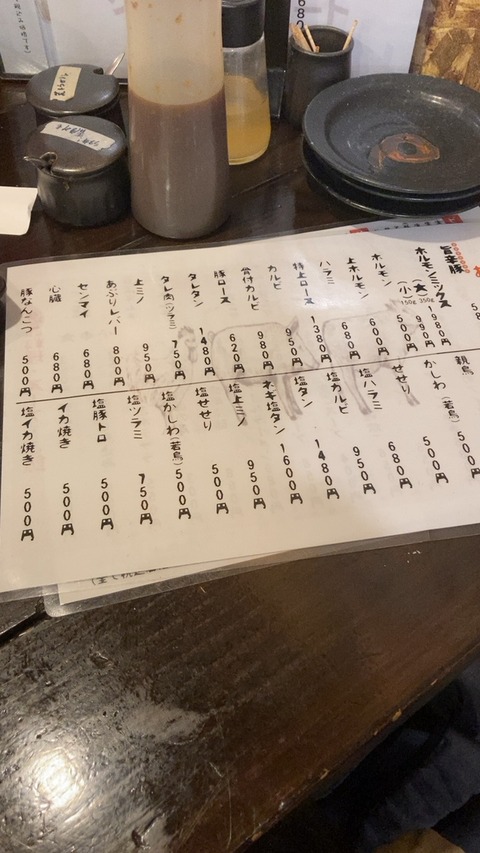 旨辛豚
ホルモンミックス
(大) 250g 1980円
(小) 150g 990円
ホルモン 500円
上ホルモン 600円
ハラミ 680円
特上ロース 1380円
カルビ 950円
骨付カルビ 980円
豚ロース 620円
タレタン 1480円
タレ肉(ツラミ) 750円
上ミノ 950円
あぶりレバー 800円
センマイ 680円
心臓 680円
豚なんこつ 500円
親鳥
かしわ(若鳥) 500円
せせり 500円
塩ハラミ 680円
塩カルビ 950円
塩タン 1480円
ネギ塩タン 1600円
塩上ミノ 950円
塩せせり 500円
塩かしわ(若鳥) 500円
塩ツラミ 750円
塩豚トロ 500円
イカ焼き 500円
塩イカ焼き 500円